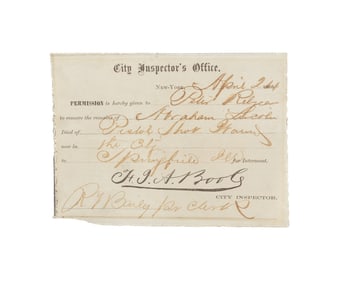 City Inspector's Office.
New-York, April 24
PERMISSION is hereby given to Peter Relyea
to remove the remains of Abraham Lincoln
Died of Pistol Shot Wound
now in the City
to Springfield Ill for Interment.
F. I. A. Boole
CITY INSPECTOR.
per Clerk